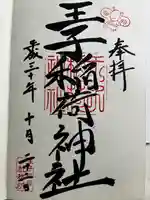 奉拝
王子稲荷神社
平成三十年十月二十二日